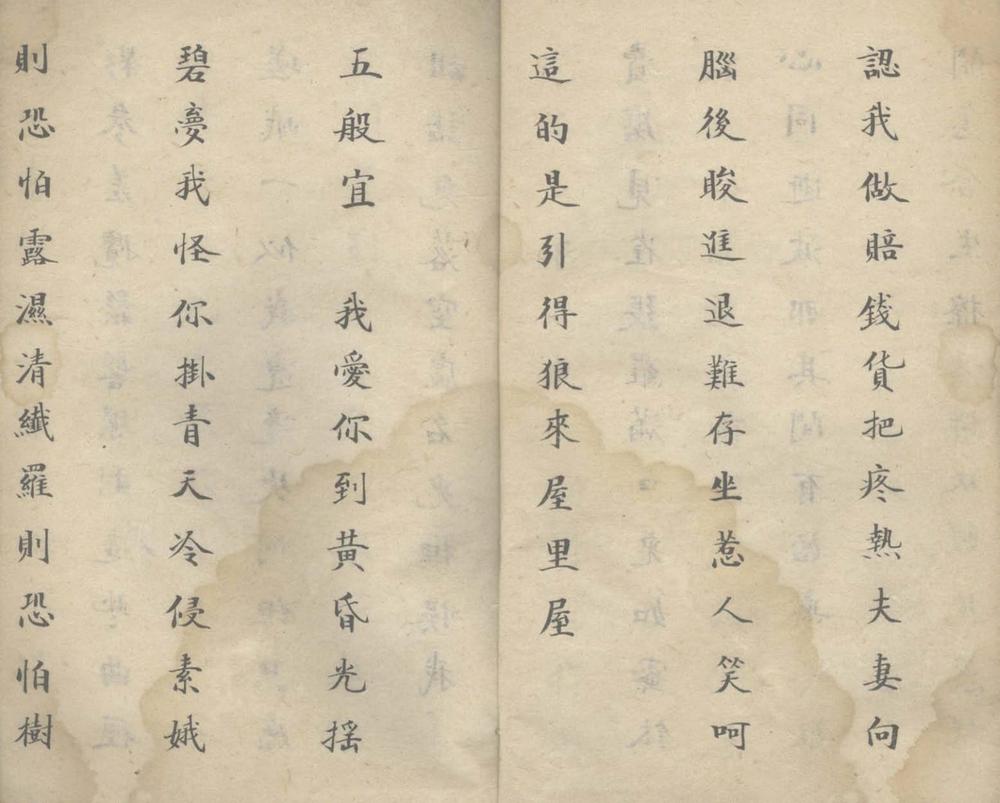 認我做賠錢貨把疼熱夫妻向
腦後睃進退難存坐惹人笑呵
這的是引得狼來屋里屋
五般宜　我愛你到黃昏光搖
碧夢我怪你掛青天冷侵素娥
則恐怕露濕清纖羅則恐怕樹